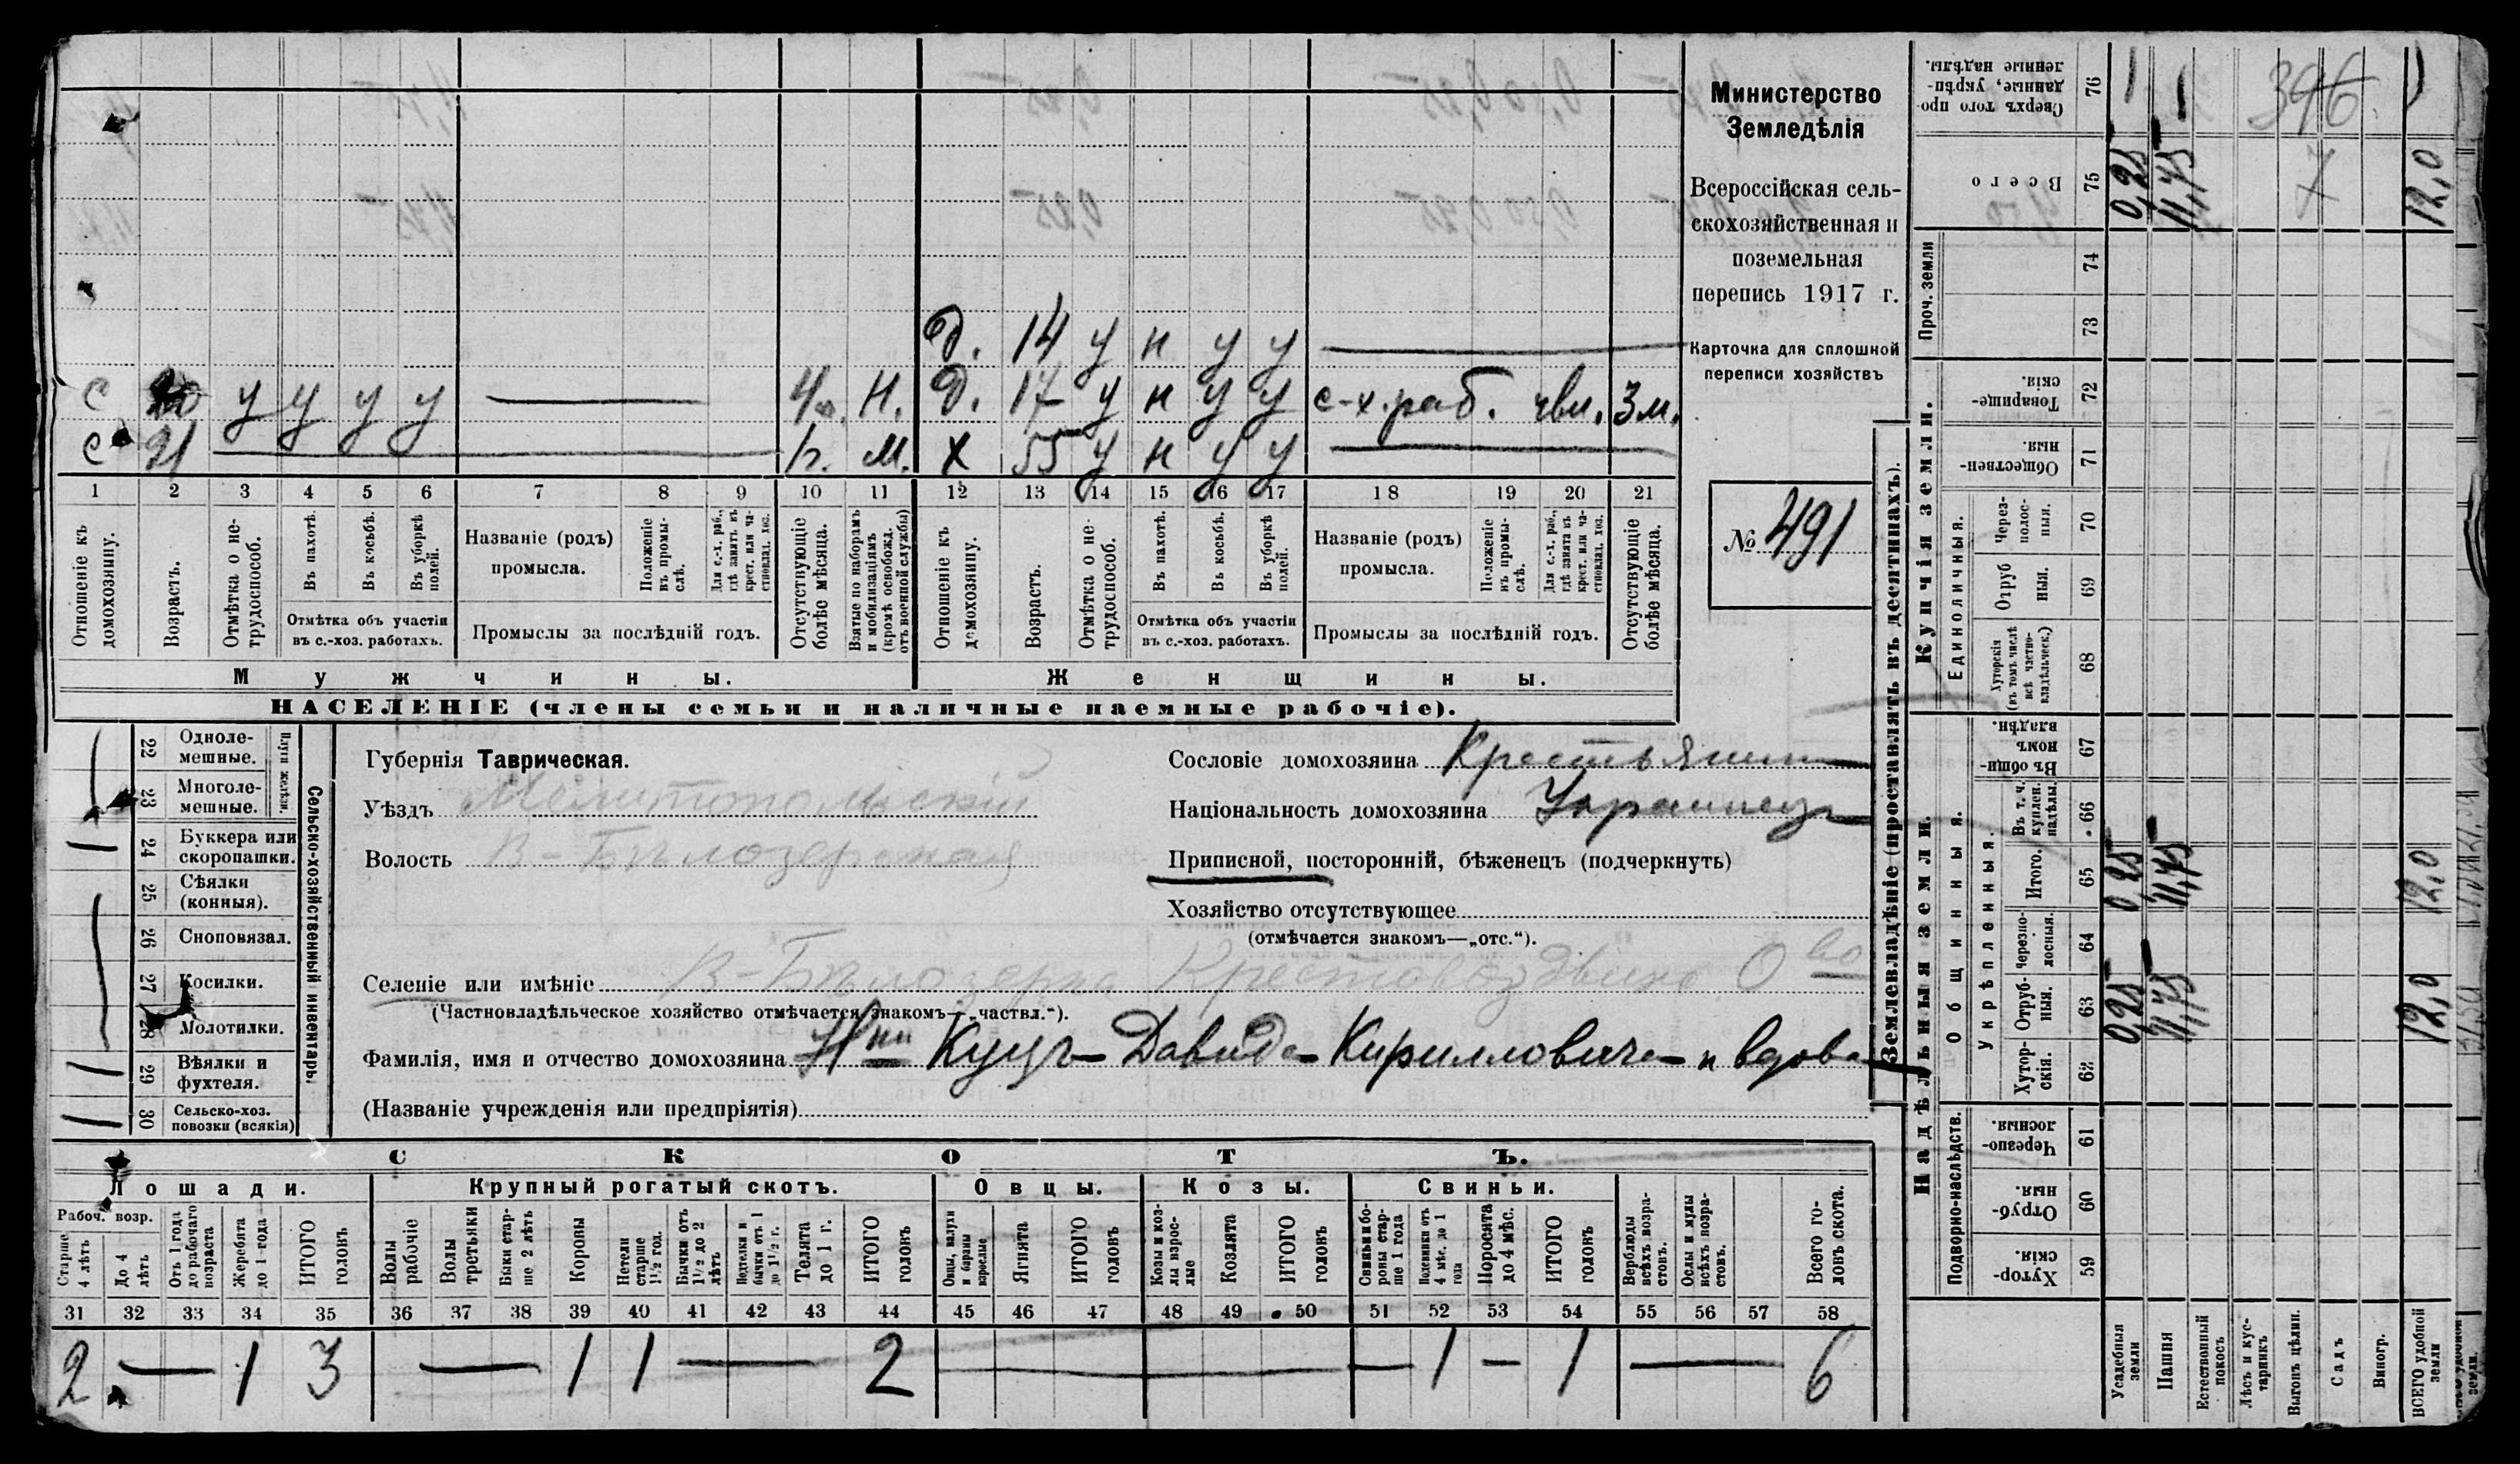 Министерство
Земледѣлія
Всероссійская сель-
скохозяйственная и
поземельная
перепись 1917 г.
Карточка для сплошной
переписи хозяйствъ
№ 491
Д. 14 у н у у
с 20 у у у у Н. Д. 17 у н у у с-х. раб. 3 м.
с 21 М. Х 55 у н у у
1 2 3 4 5 6 7 8 9 10 11 12 13 14 15 16 17 18 19 20 21
Отношеніе къ домохозяину.
Возрастъ.
Отмѣтка о не-трудоспособ.
Въ пахотѣ.
Въ косьбѣ.
Въ уборкѣ полей.
Отмѣтка объ участіи
въ с.-хоз. работахъ.
Названіе (родъ)
промысла.
Положеніе въ промы-слѣ.
Для с.-х. раб., гдѣ занятъ въ крест. или ча-стновлад. хоз.
Промыслы за послѣдній годъ.
Отсутствующіе болѣе мѣсяца.
Взятые по наборамъ и мобилизаціямъ (кромѣ освобожд. отъ военной службы)
Отношеніе къ домохозяину.
Возрастъ.
Отмѣтка о не-трудоспособ.
Въ пахотѣ.
Въ косьбѣ.
Въ уборкѣ полей.
Отмѣтка объ участіи
въ с.-хоз. работахъ.
Названіе (родъ)
промысла.
Положеніе въ промы-слѣ.
Для с.-х. раб., гдѣ занята въ крест. или ча-стновлад. хоз.
Промыслы за послѣдній годъ.
Отсутствующіе болѣе мѣсяца.
Мужчины. Женщины.
НАСЕЛЕНІЕ (члены семьи и наличные наемные рабочіе).
Сельско-хозяйственный инвентарь.
22 Одноле-мешные.
23 Многоле-мешные.
24 Буккера или скоропашки. 1
25 Сѣялки (конныя).
26 Сноповязал.
27 Косилки.
28 Молотилки.
29 Вѣялки и фухтеля. 1
30 Сельско-хоз. повозки (всякія) 1
Губернія Таврическая.
Уѣздъ Мелитопольскій
Волость В-Бѣлозерская
Сословіе домохозяина Крестьянин
Національность домохозяина Украинец
Приписной, посторонній, бѣженецъ (подчеркнуть)
Хозяйство отсутствующее
(отмѣчается знакомъ—„отс.“).
Селеніе или имѣніе В-Бѣлозерка Крестовоздвиж. О-во
(Частновладѣльческое хозяйство отмѣчается знакомъ—„частвл.“).
Фамилія, имя и отчество домохозяина Куцъ Давида Кирилловича вдова
(Названіе учрежденія или предпріятія)
СКОТЪ.
Лошади. Крупный рогатый скотъ. Овцы. Козы. Свиньи.
Рабоч. возр.
Старше 4 лѣтъ
До 4 лѣтъ
Отъ 1 года до рабочаго возраста
Жеребята до 1 года
ИТОГО головъ
Волы рабочіе
Волы третьяки
Быки стар-ше 2 лѣтъ
Коровы
Нетели старше 1½ год.
Бычки отъ 1½ до 2 лѣтъ
Подтелки и бычки отъ 1 до 1½ г.
Телята до 1 г.
ИТОГО головъ
Овцы, валухи и бараны взрослые
Ягнята
ИТОГО головъ
Козы и коз-лы взрос-лые
Козлята
ИТОГО головъ
Свиньи и бо-ровы стар-ше 1 года
Подсвинки отъ 4 мѣс. до 1 года
Поросята до 4 мѣс.
ИТОГО головъ
Верблюды всѣхъ возра-стовъ.
Ослы и мулы всѣхъ возра-стовъ.
Всего го-ловъ скота.
31 32 33 34 35 36 37 38 39 40 41 42 43 44 45 46 47 48 49 50 51 52 53 54 55 56 57 58
2 — 1 3 — 1 1 — 2 — — 1 — 1 — 6
Землевладѣніе (проставлять въ десятинахъ).
Купчія земли.
Надѣльныя земли.
Сверхъ того про-данные, укрѣп-ленные надѣлы. 76
Всего 75 0,25 11,75 12,0
396
7
Проч. земли 74 73
Товарище-скія. 72
Обществен-ныя. 71
Единоличныя.
Через-полос-ныя. 70
Отруб ныя. 69
Хуторскія (въ томъ числѣ всѣ частно-владѣльческ.) 68
Общинныя.
Въ общи-номъ владѣн. 67
Укрѣпленныя.
Въ т. ч. куплен. надѣлы. 66
Итого. 65 0,25 11,75 12,0
Черезпо-лосныя. 64
Отруб-ныя. 63 0,25 11,75 12,0
Хутор-скія. 62
Подворно-наслѣдств.
Черезпо-лосныя. 61
Отруб-ныя. 60
Хутор-скія. 59
Усадебныя земли
Пашня
Естественный покосъ
Лѣсъ и кус-тарникъ
Выгонъ цѣлин.
Садъ
Виногр.
ВСЕГО удобной земли